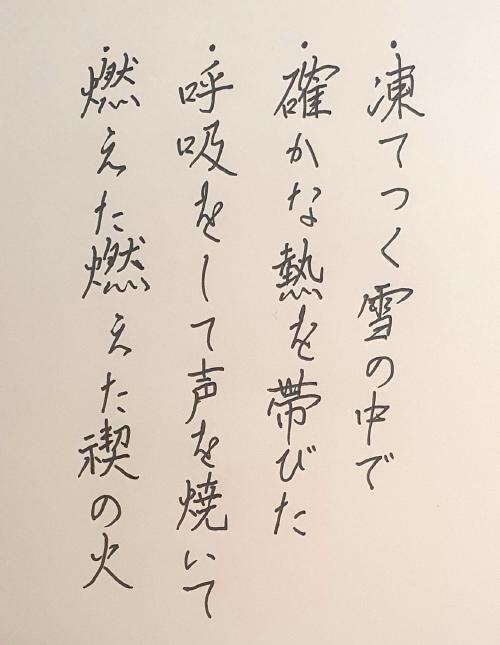 ・凍てつく雪の中で
・確かな熱を帯びた
・呼吸をして声を焼いて
・燃えた燃えた禊の火